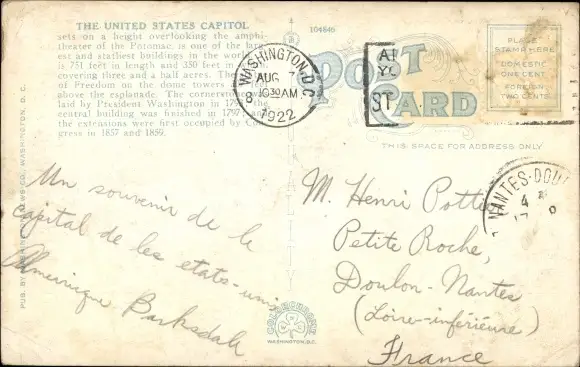 THE UNITED STATES CAPITOL
sets on a height overlooking the amphi-
theater of the Potomac, is one of the larg-
est and stateliest buildings in the world.
is 751 feet in length and 350 feet in
covering three and a half acres. The
of Freedom on the dome towers
above the esplanade. The cornerstone was
laid by President Washington in 179
central building was finished in 1797, and
the extensions were first occupied by Con-
gress in 1857 and 1859.
104646
WASHINGTON, D.C.
AUG 7
8 1030 AM
1922
POST
CARD
AI
YO
ST
PLACE
STAMP HERE
DOMESTIC
ONE CENT
FOREIGN
TWO CENTS
THIS SPACE FOR ADDRESS ONLY
NANTES-DOU
4
17
Un souvenir de la
capital de les etats-unis
Amerique Barksdale
M. Henri Potte
Petite Roche,
Doulon-Nantes
(Loire-inférieure)
France
QUALITY
WASHINGTON, D.C.
PUB. BY WASHINGTON NEWS CO., WASHINGTON, D. C.